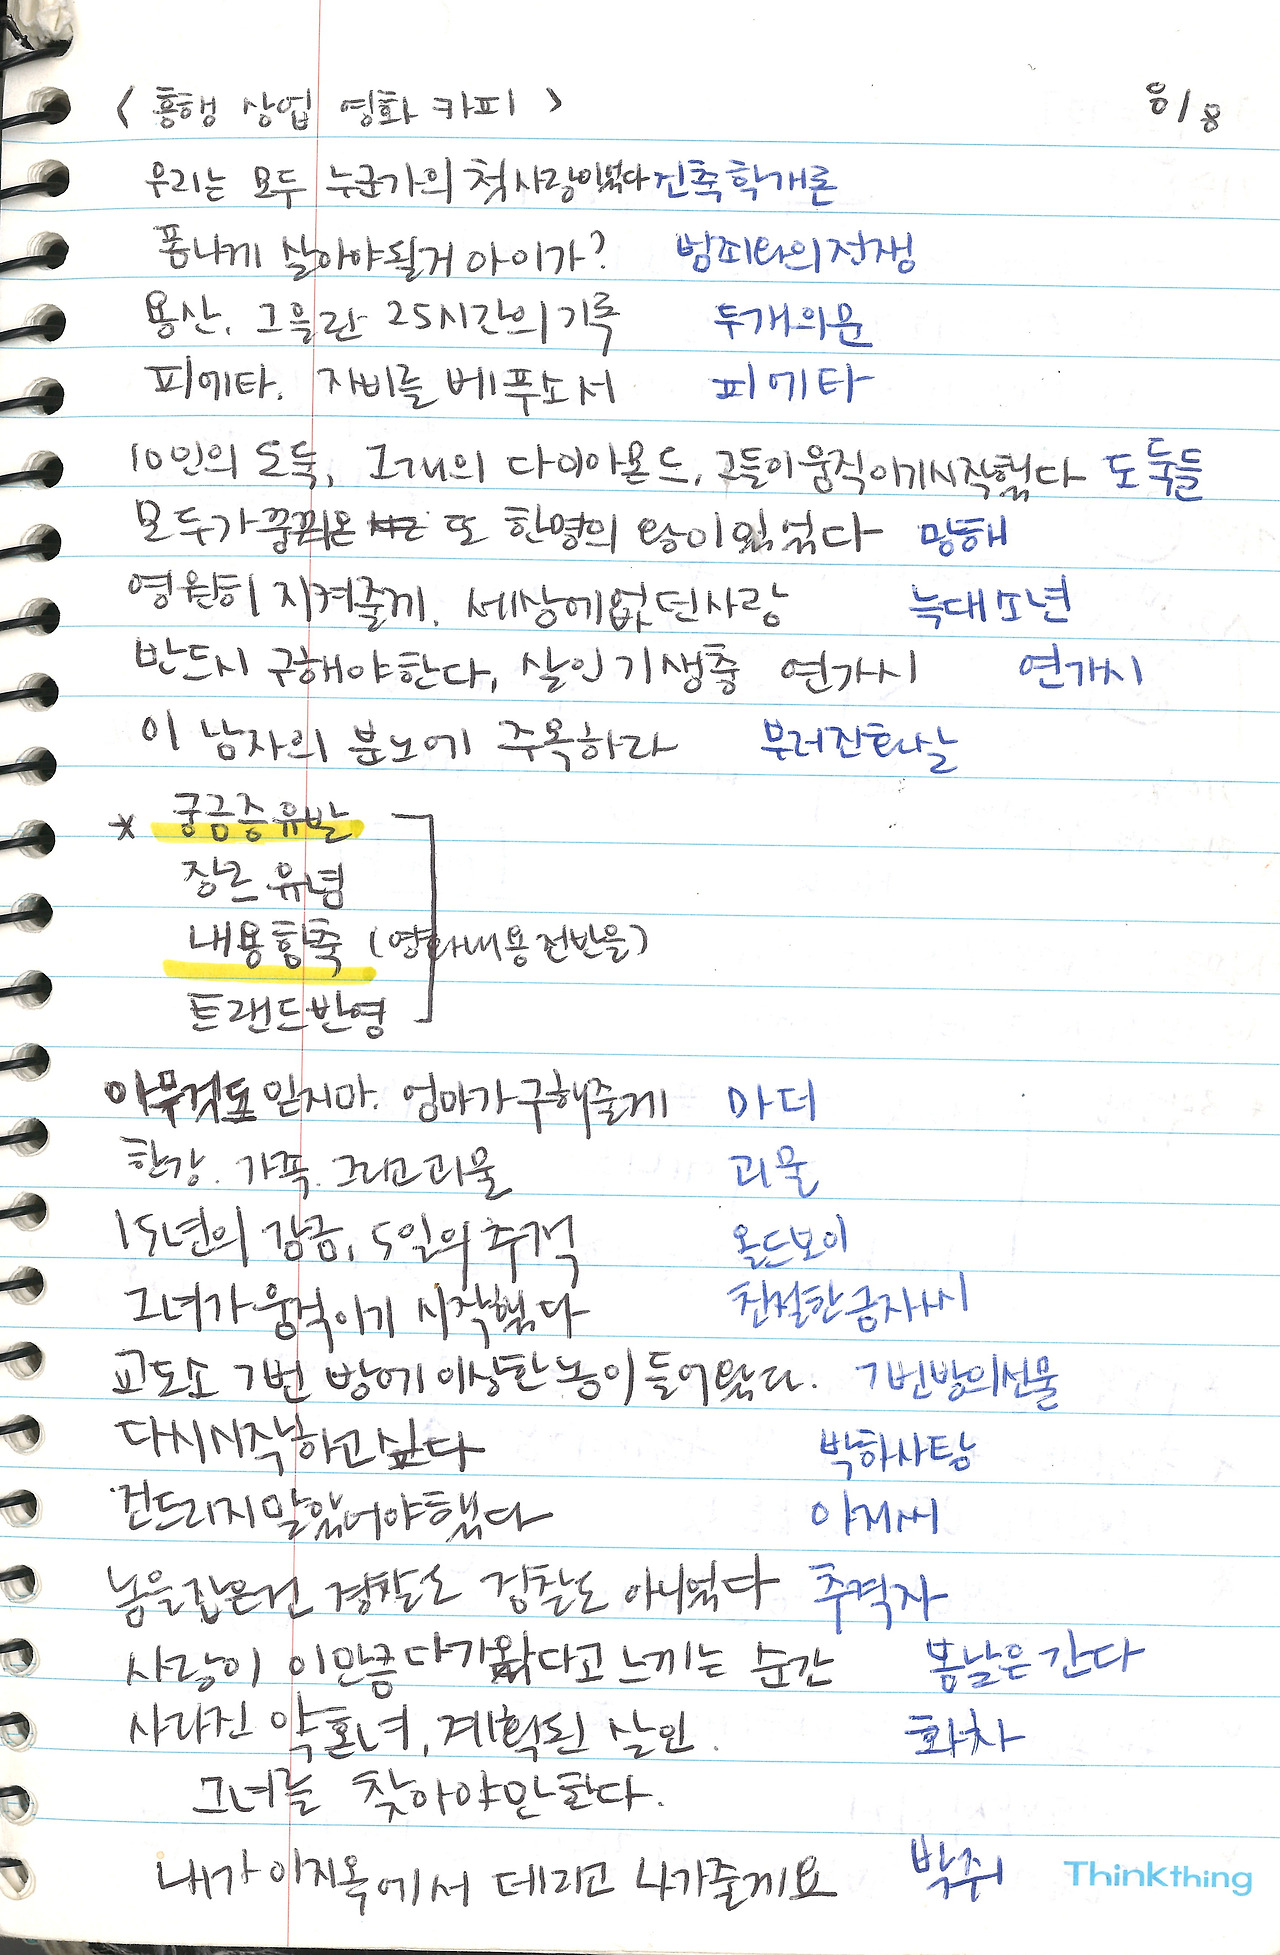 < 흥행 상업 영화 카피 > 8/8
우리는 모두 누군가의 첫사랑이었다 건축학개론
폼나게 살아야될거 아이가? 범죄와의전쟁
용산, 그을란 25시간의 기록 두개의문
피에타. 자비를 베푸소서 피에타
10인의 도둑, 1개의 다이아몬드, 그들이 움직이기시작했다 도둑들
모두가 꿈꿔온 또 한명의 왕이 있었다 광해
영원히 지켜줄게. 세상에없던사랑 늑대소년
반드시 구해야한다, 살인기생충 연가시 연가시
이 남자의 분노에 주목하라 부러진화살
* 궁금증유발
장르 유념
내용함축 (영화내용전반을)
트랜드반영
아무것도 믿지마. 엄마가구해줄게 마더
한강. 가족. 그리고괴물 괴물
15년의 감금, 5일의추적 올드보이
그녀가 움직이기 시작했다 친절한금자씨
교도소 7번 방에 이상한놈이 들어왔다. 7번방의선물
다시시작하고싶다 박하사탕
건드리지말았어야했다 아저씨
놈을잡은건 경찰도 검찰도 아니었다 추격자
사랑이 이만큼다가왔다고 느끼는 순간 봄날은간다
사라진 약혼녀, 계획된 살인. 화차
그녀를 찾아야만한다.
내가 이지옥에서 데리고 나가줄게요 박쥐
Thinkthing